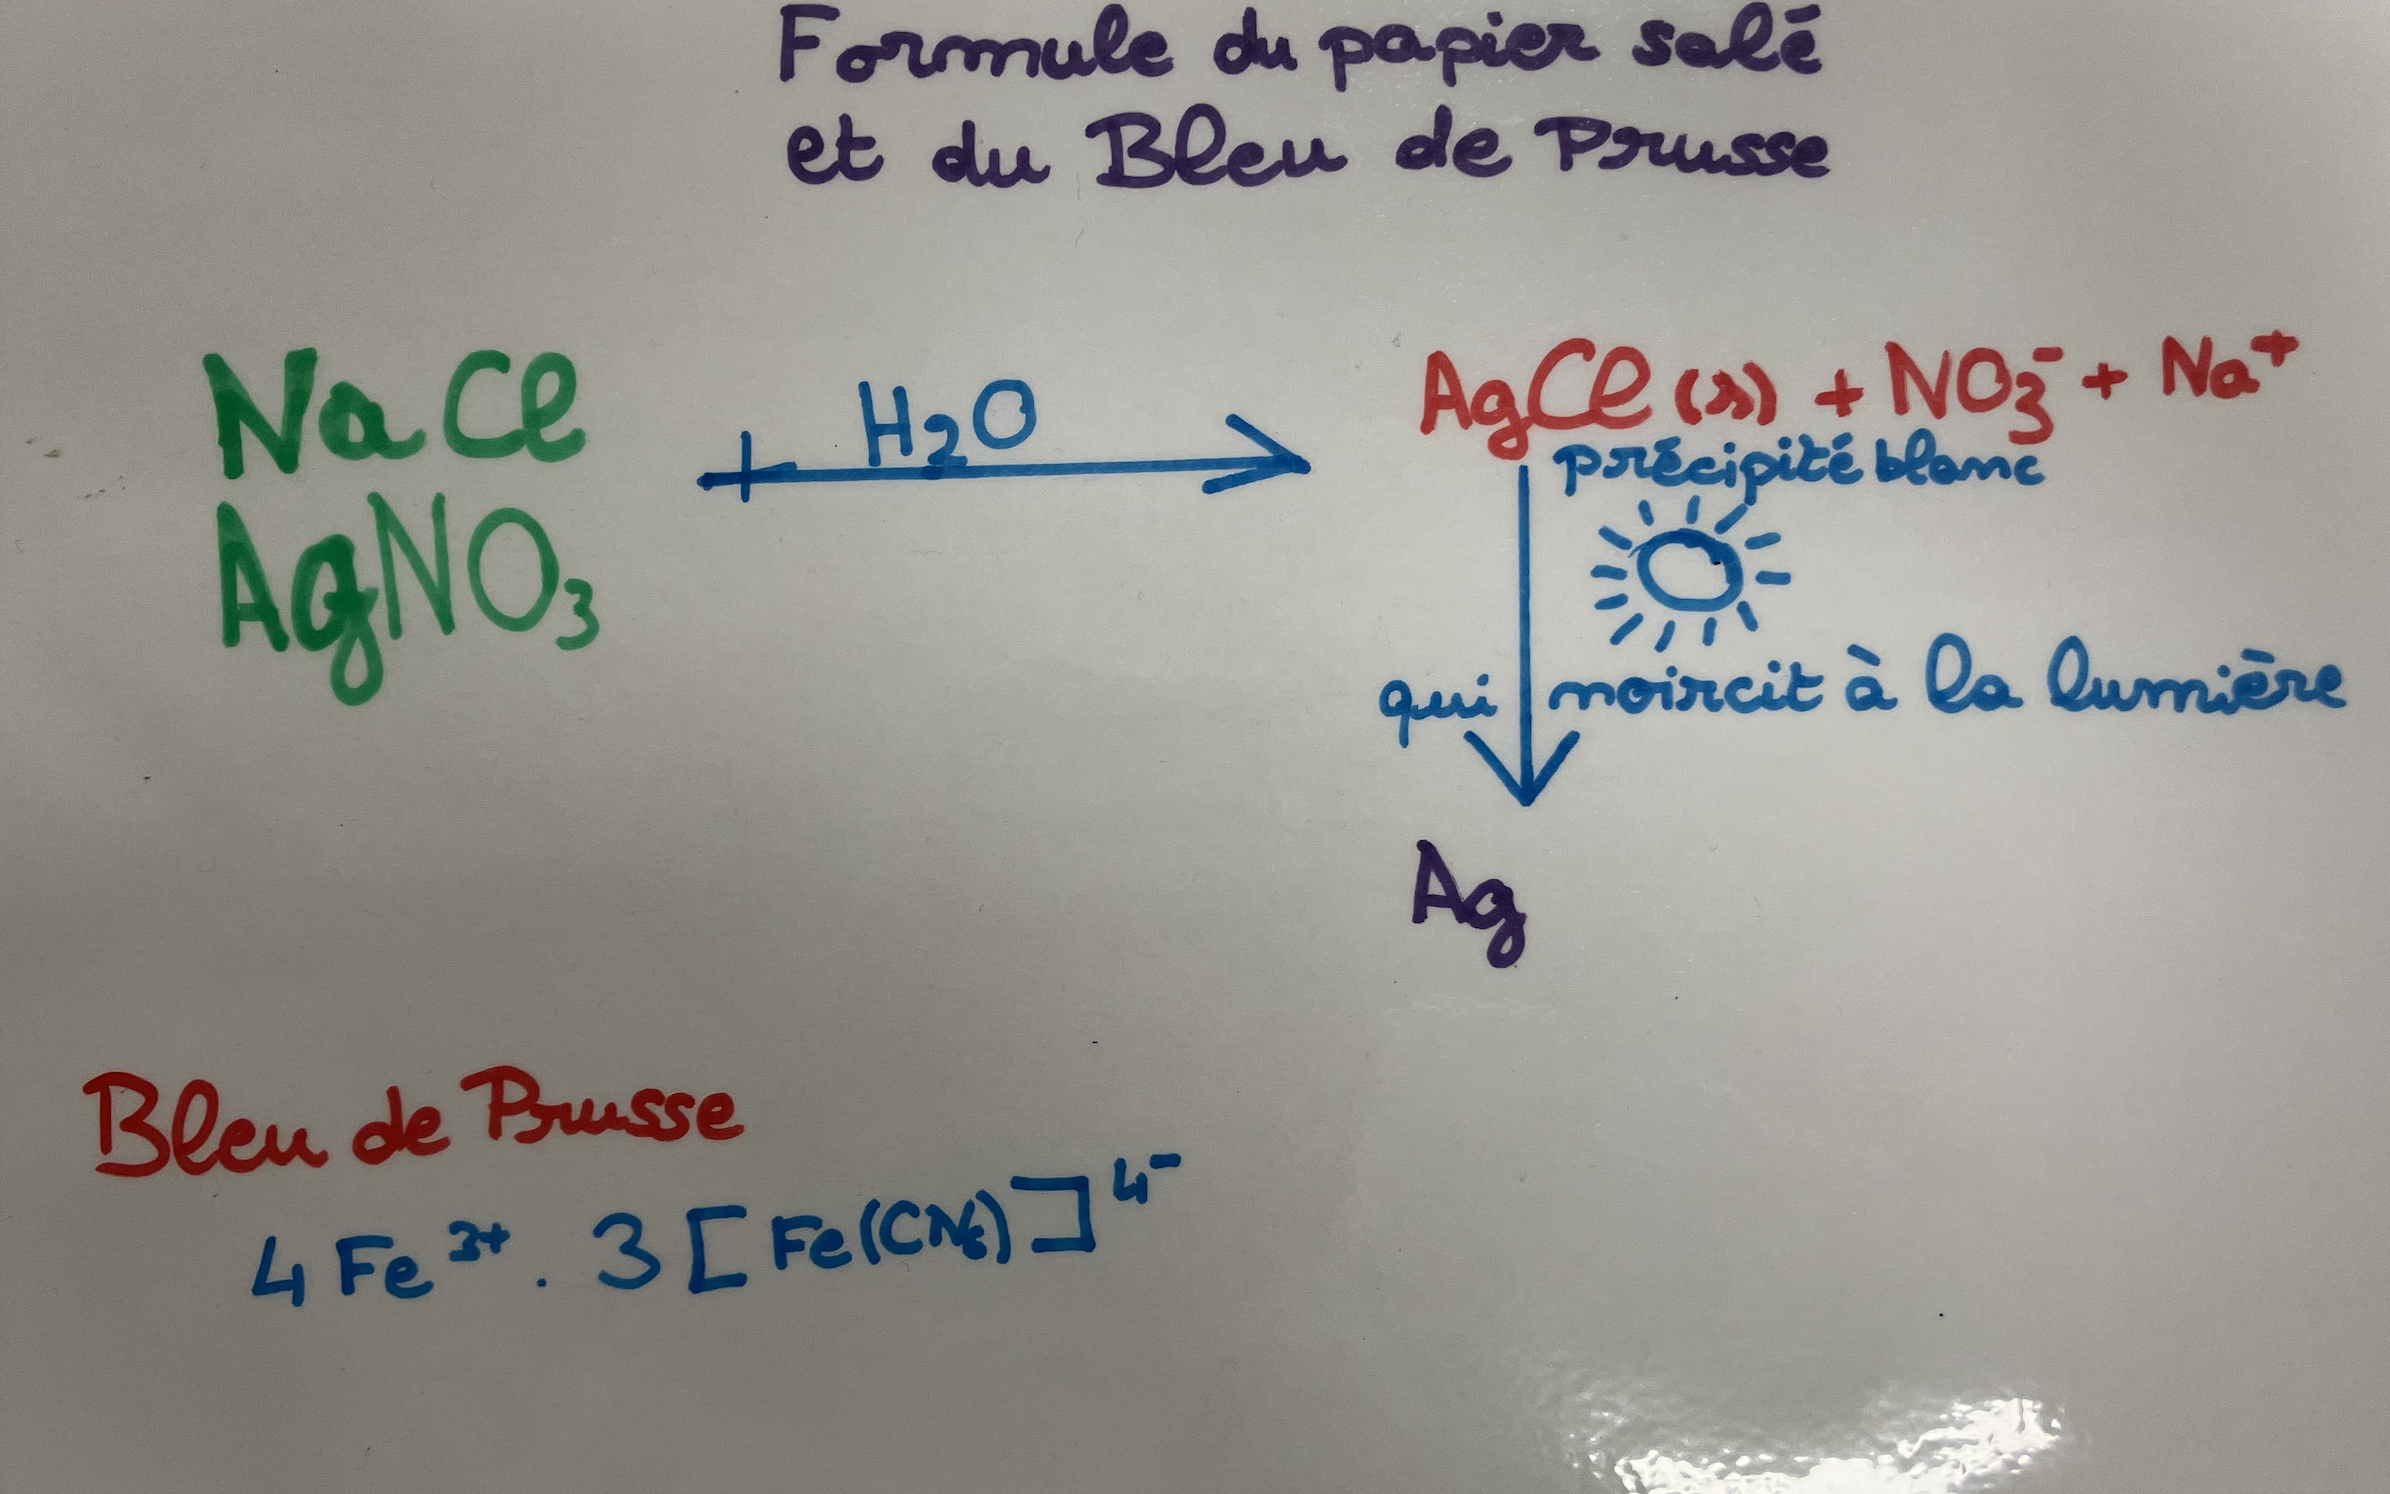 Formule du papier salé
et du Bleu de Prusse
NaCl
AgNO₃
+ H₂O
AgCl (s) + NO₃⁻ + Na⁺
précipité blanc
qui noircit à la lumière
Ag
Bleu de Prusse
4 Fe³⁺ . 3 [Fe(CN₆)]⁴⁻